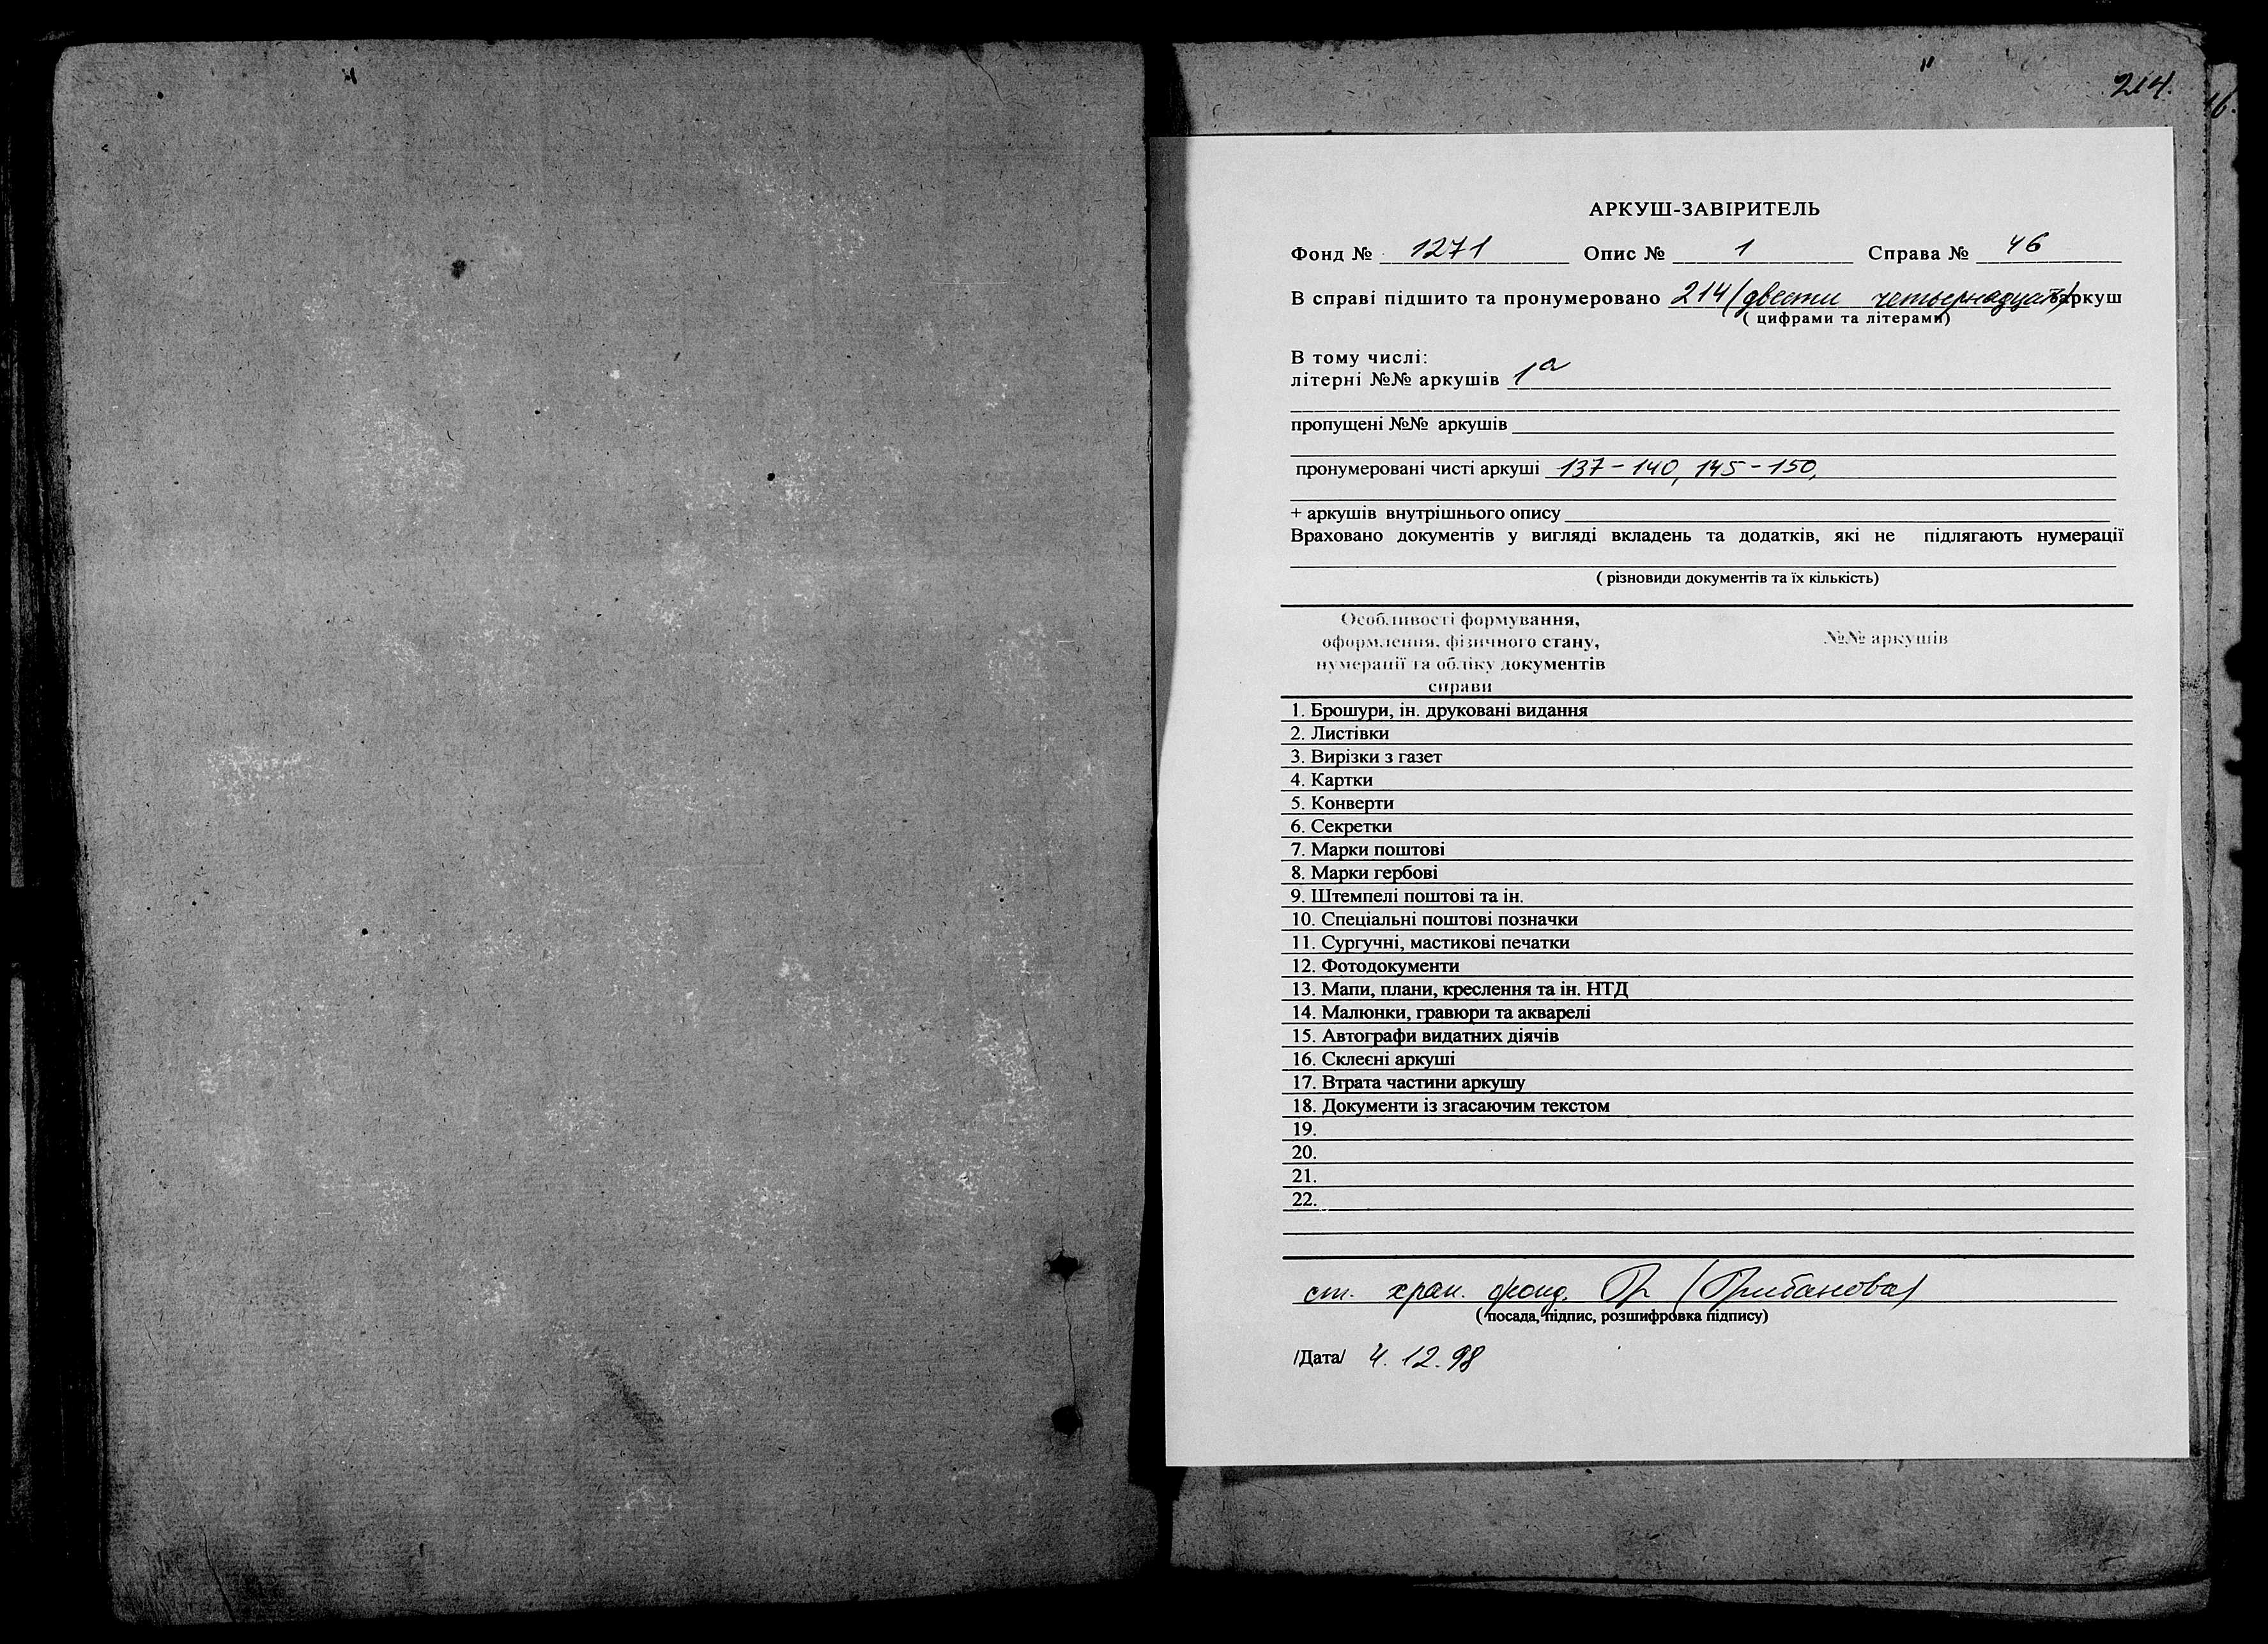 214.
АРКУШ-ЗАВІРИТЕЛЬ
Фонд № 1271 Опис № 1 Справа № 46
В справі підшито та пронумеровано 214 (двести четырнадцать) аркуш
( цифрами та літерами)
В тому числі:
літерні №№ аркушів 1а
пропущені №№ аркушів
пронумеровані чисті аркуші 137-140, 145-150,
+ аркушів внутрішнього опису
Враховано документів у вигляді вкладень та додатків, які не підлягають нумерації
( різновиди документів та їх кількість)
Особливості формування,
оформлення, фізичного стану,
нумерації та обліку документів
справи
№№ аркушів
1. Брошури, ін. друковані видання
2. Листівки
3. Вирізки з газет
4. Картки
5. Конверти
6. Секретки
7. Марки поштові
8. Марки гербові
9. Штемпелі поштові та ін.
10. Спеціальні поштові позначки
11. Сургучні, мастикові печатки
12. Фотодокументи
13. Мапи, плани, креслення та ін. НТД
14. Малюнки, гравюри та акварелі
15. Автографи видатних діячів
16. Склеєні аркуші
17. Втрата частини аркушу
18. Документи із згасаючим текстом
19.
20.
21.
22.
ст. хран. фонд. (Грибанова)
( посада, підпис, розшифровка підпису)
/Дата/ 4. 12. 98